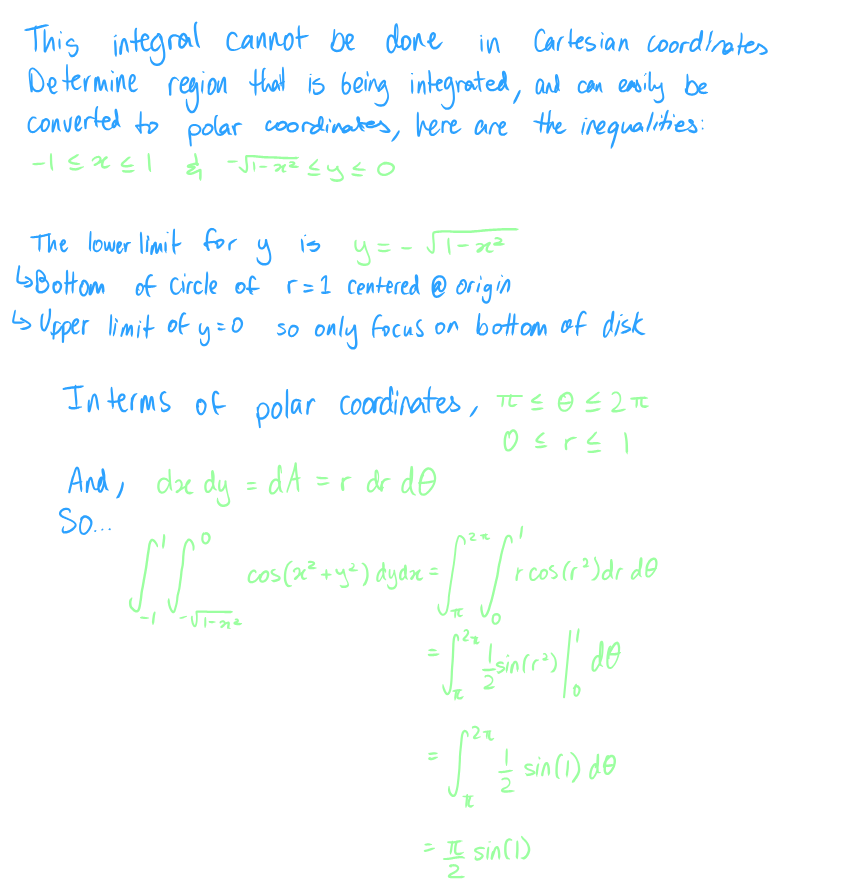 This integral cannot be done in Cartesian coordinates
Determine region that is being integrated, and can easily be
converted to polar coordinates, here are the inequalities:
-1 ≤ x ≤ 1 & -√(1-x²) ≤ y ≤ 0
The lower limit for y is y = -√(1-x²)
↳ Bottom of circle of r=1 centered @ origin
↳ Upper limit of y=0 so only focus on bottom of disk
In terms of polar coordinates, π ≤ θ ≤ 2π
0 ≤ r ≤ 1
And, dx dy = dA = r dr dθ
So...
∫_{-1}^{1} ∫_{-√(1-x²)}^{0} cos(x²+y²) dydx = ∫_{π}^{2π} ∫_{0}^{1} r cos(r²) dr dθ
= ∫_{π}^{2π} 1/2 sin(r²) |_{0}^{1} dθ
= ∫_{π}^{2π} 1/2 sin(1) dθ
= π/2 sin(1)